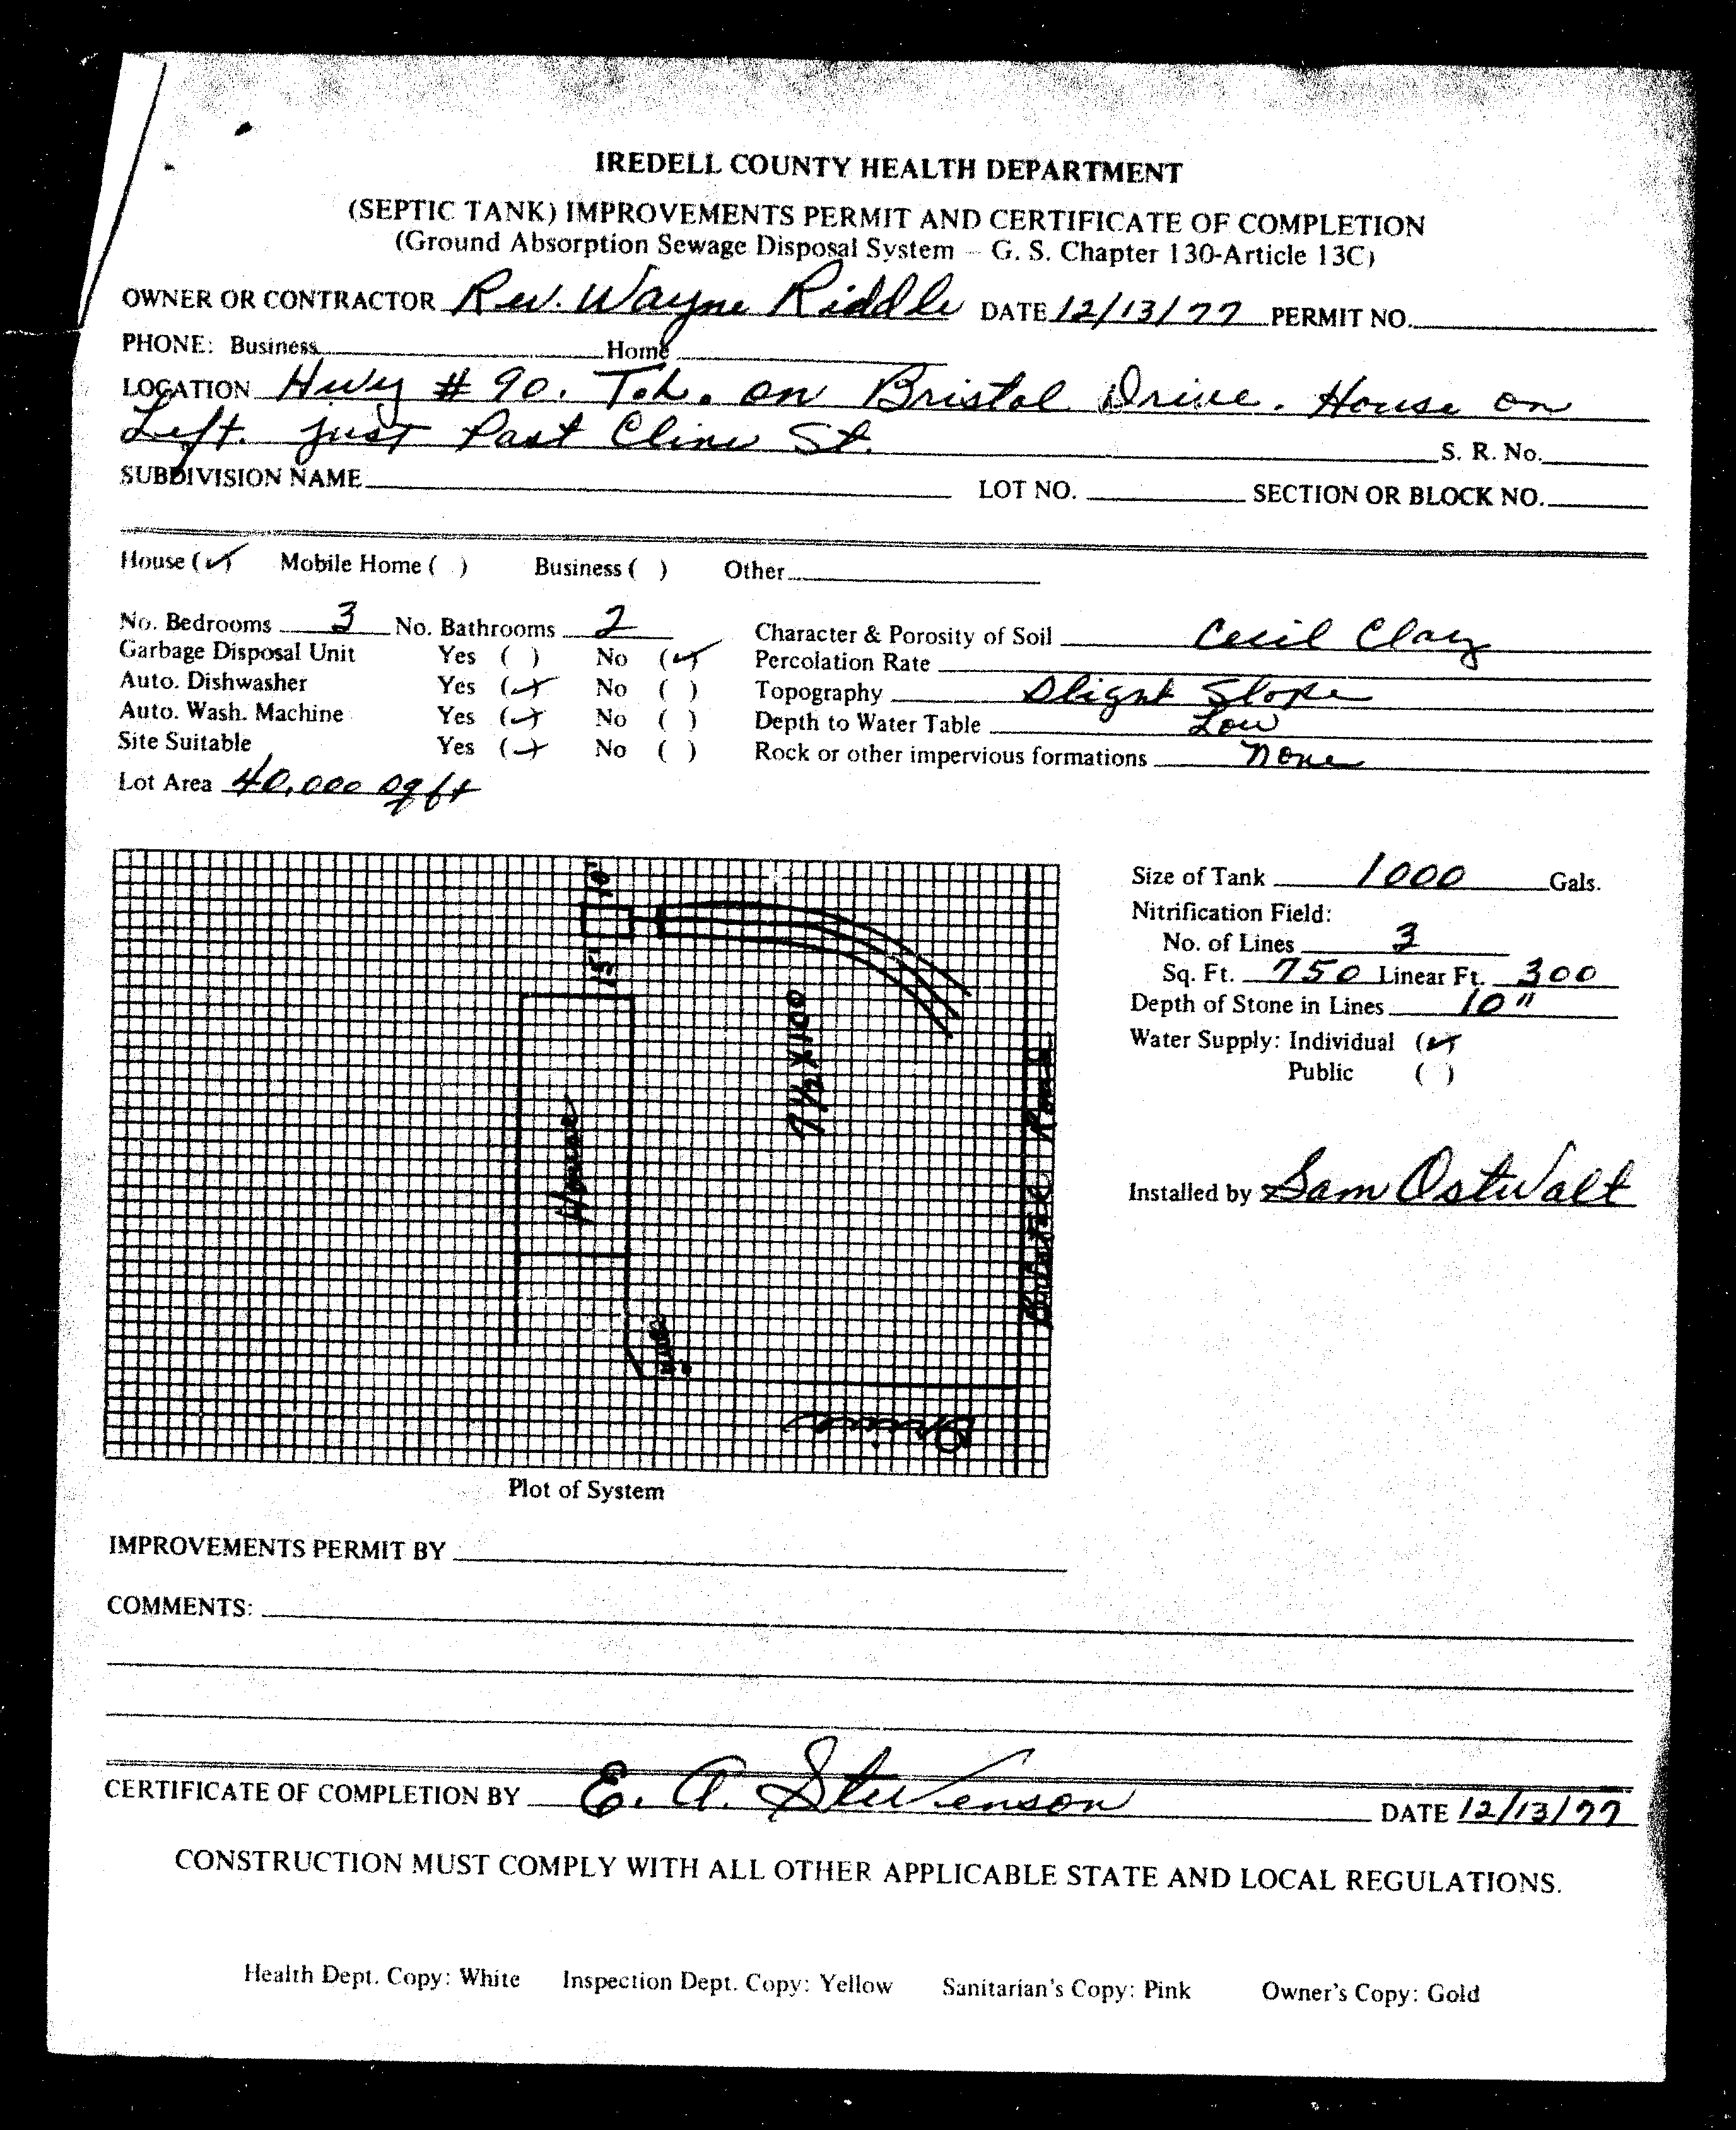 IREDELL COUNTY HEALTH DEPARTMENT
(SEPTIC TANK) IMPROVEMENTS PERMIT AND CERTIFICATE OF COMPLETION
(Ground Absorption Sewage Disposal System – G. S. Chapter 130-Article 13C)
OWNER OR CONTRACTOR Rev. Wayne Riddle DATE 12/13/77 PERMIT NO.
PHONE: Business Home
LOCATION Hwy # 90. T.L. on Bristol Drive. House on
Left. just Past Cline St. S. R. No.
SUBDIVISION NAME LOT NO. SECTION OR BLOCK NO.
House (✓) Mobile Home ( ) Business ( ) Other
No. Bedrooms 3 No. Bathrooms 2 Character & Porosity of Soil Cecil Clay
Garbage Disposal Unit Yes ( ) No (✓) Percolation Rate
Auto. Dishwasher Yes (✓) No ( ) Topography Slight Slope
Auto. Wash. Machine Yes (✓) No ( ) Depth to Water Table Low
Site Suitable Yes (✓) No ( ) Rock or other impervious formations none
Lot Area 40,000 sq ft
10'
15'
House
7½X100
Road
Drive
Plot of System
Size of Tank 1000 Gals.
Nitrification Field:
No. of Lines 3
Sq. Ft. 750 Linear Ft. 300
Depth of Stone in Lines 10"
Water Supply: Individual (✓)
Public ( )
Installed by Sam Ostwalt
IMPROVEMENTS PERMIT BY
COMMENTS:
CERTIFICATE OF COMPLETION BY E. A. Stevenson DATE 12/13/77
CONSTRUCTION MUST COMPLY WITH ALL OTHER APPLICABLE STATE AND LOCAL REGULATIONS.
Health Dept. Copy: White Inspection Dept. Copy: Yellow Sanitarian's Copy: Pink Owner's Copy: Gold